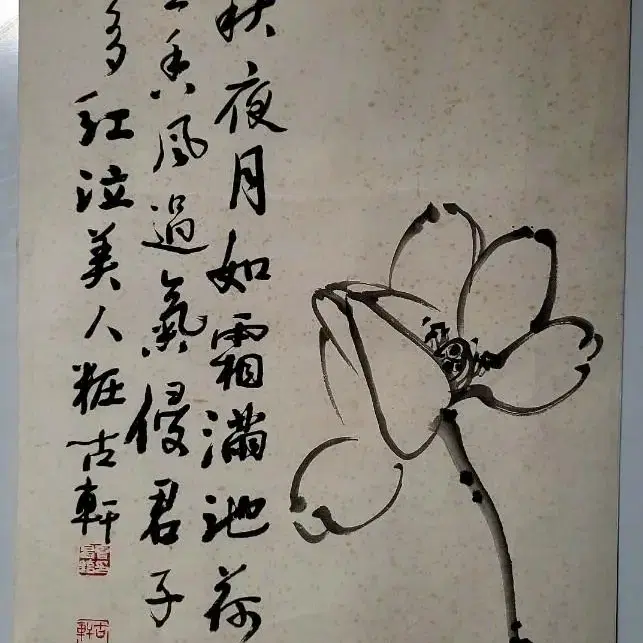 秋夜月如霜滿池荷
香風過氣侵君子
多紅泣美人粧古軒
古軒